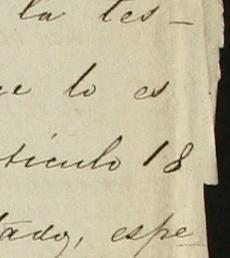 la tes-
ue lo es
tículo 18
tado, espe